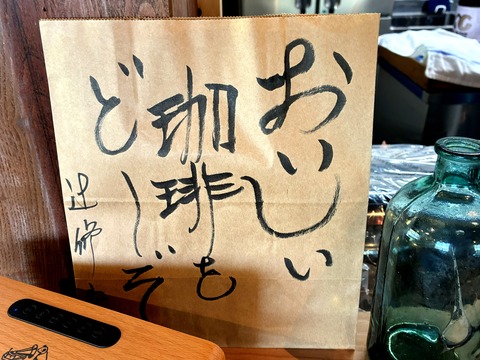 おいしい
珈琲も
どーぞ
辻修